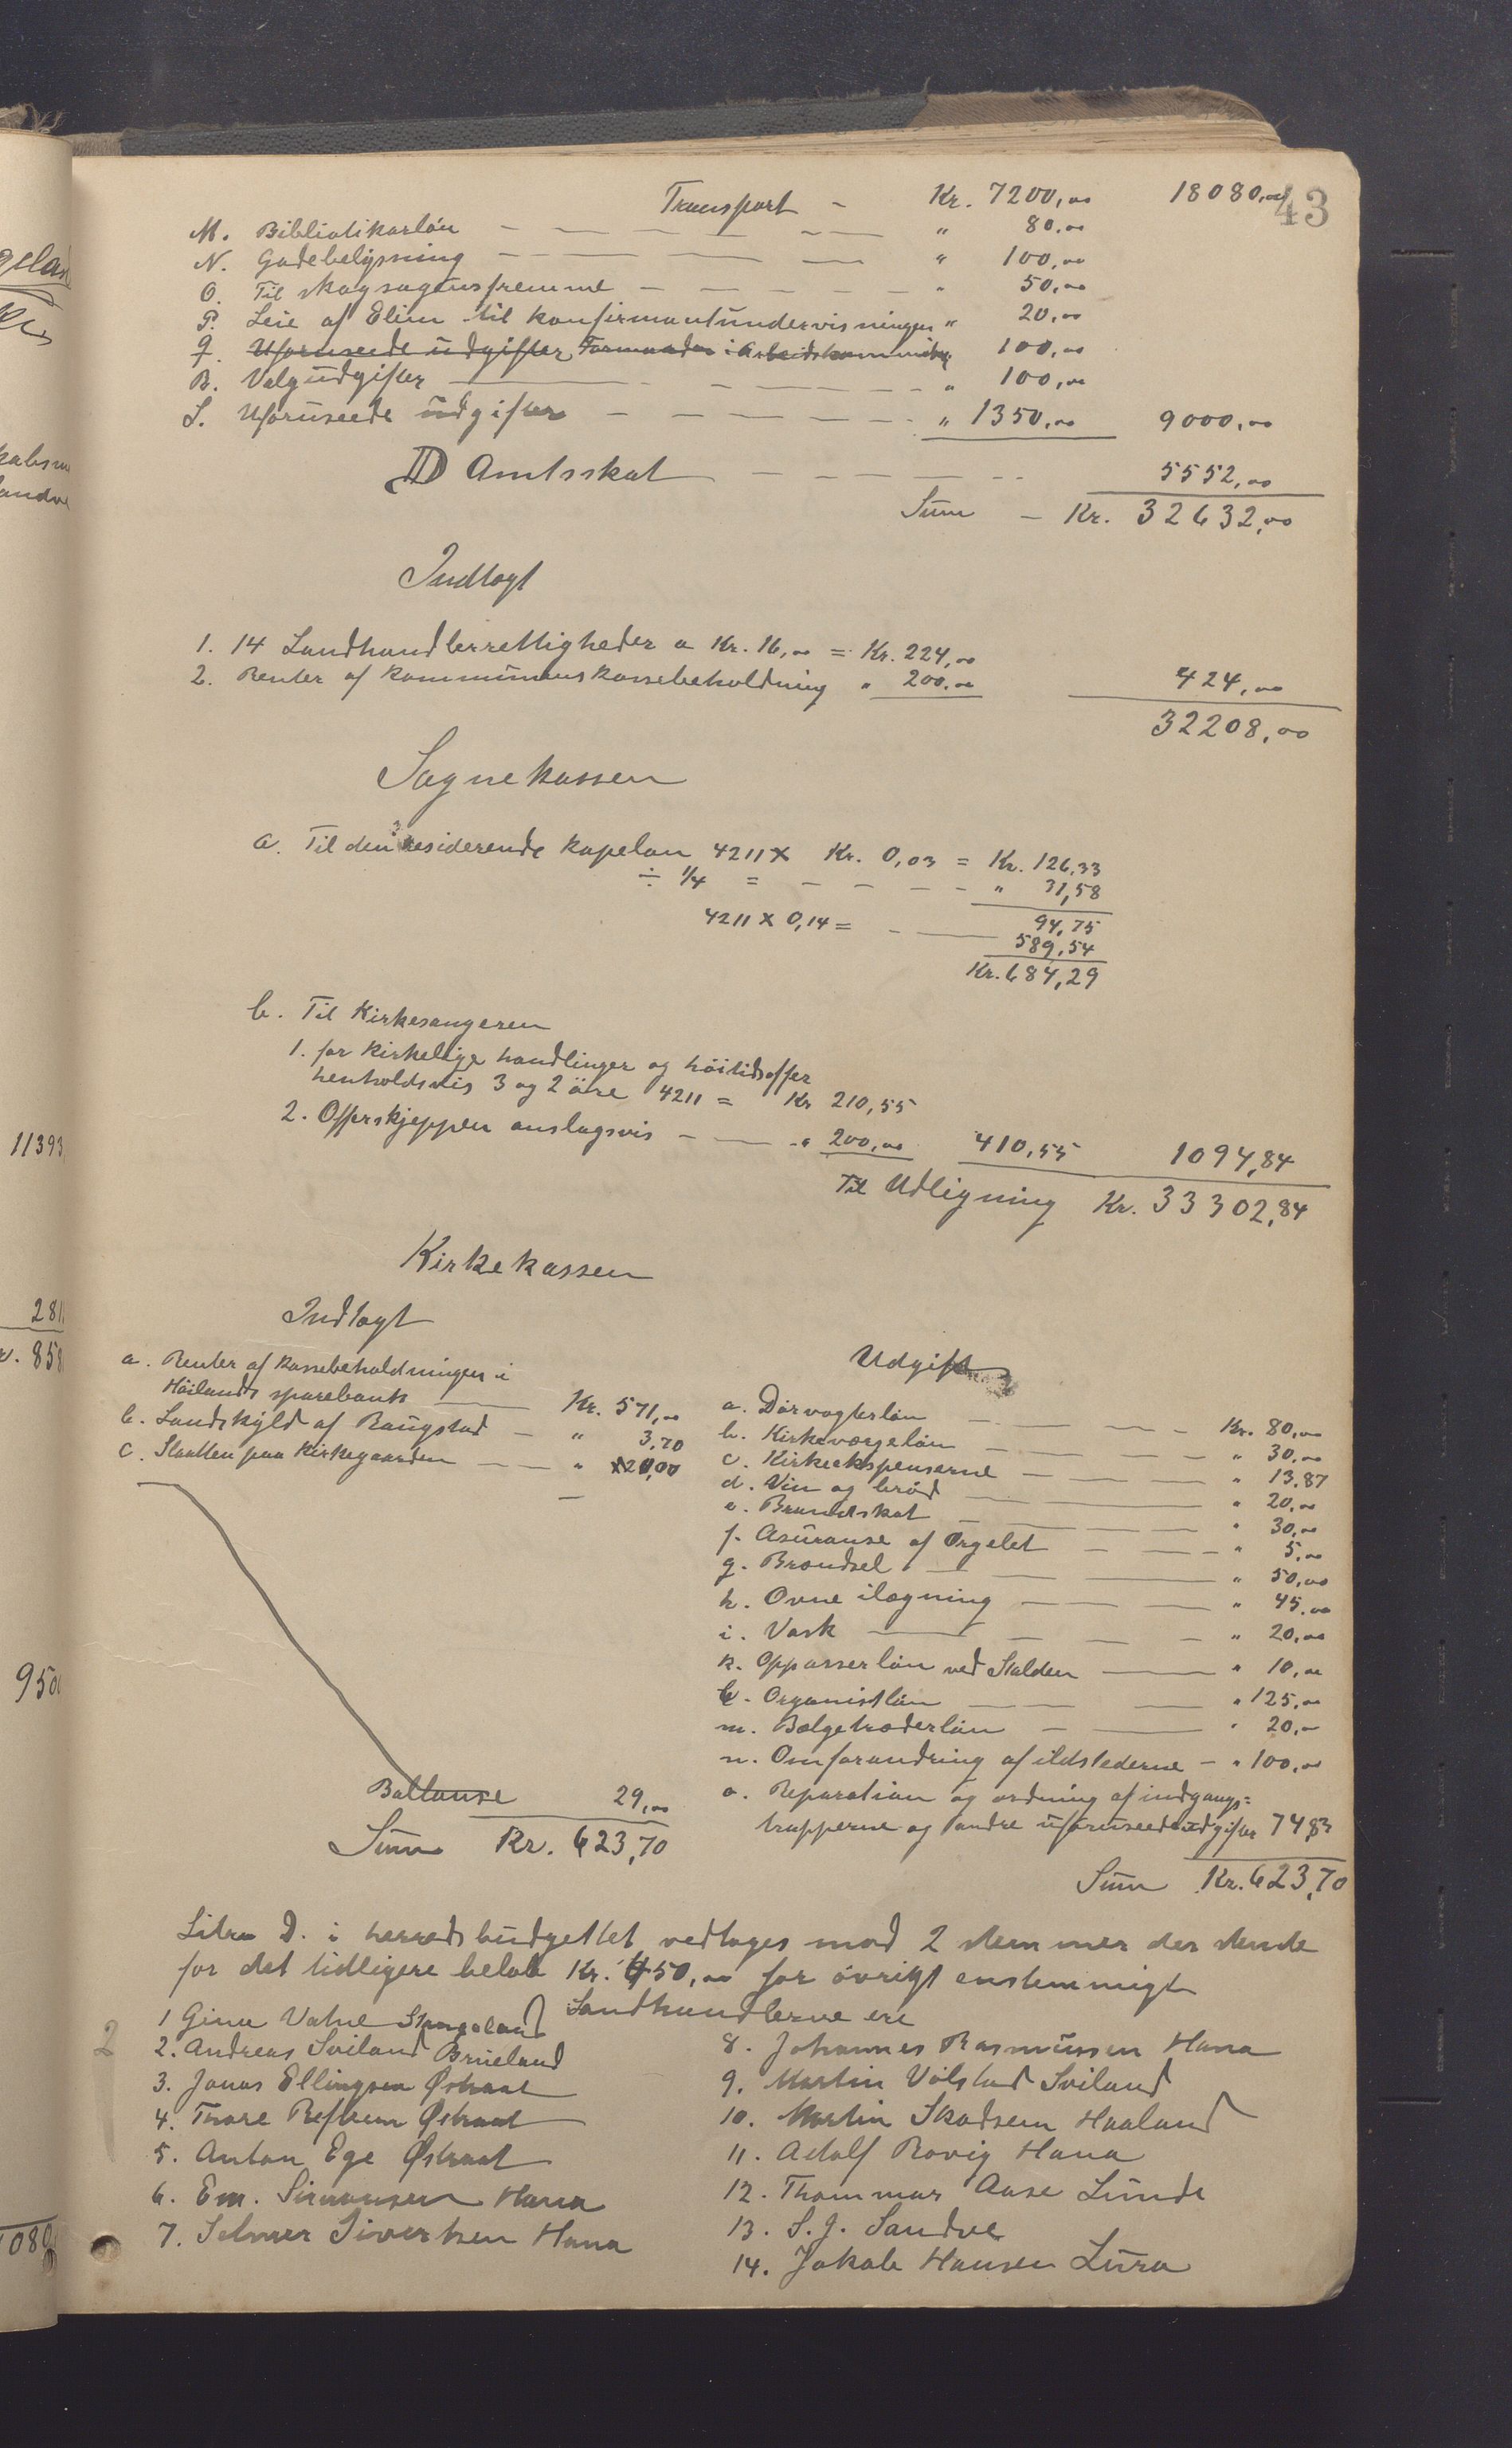 43
Transport - Kr. 7200,00 18080,00
M. Bibliotikarløn - - - - - " 80,00
N. Gadebelysning - - - - - " 100,00
O. Til skogsagens fremme - - - - - " 50,00
P. Leie af Elim til konfirmantundervisningen " 20,00
Q. Uforuseede udgifter Formanden i Arbeidskommiten " 100,00
R. Valgudgifter - - - - - " 100,00
S. Uforuseede udgifter - - - - - " 1350,00 9000,00
D Amtsskat - - - - - 5552,00
Sum - Kr. 32632,00
Indtægt
1. 14 Landhandlerrettigheder a Kr. 16,00 = Kr. 224,00
2. Renter af kommunens kassebeholdning " 200,00 424,00
32208,00
Sognekassen
a. Til den residerende kapelan 4211 x Kr. 0,03 = Kr. 126,33
÷ 1/4 = - - - - " 31,58
94,75
4211 x 0,14 = - 589,54
Kr. 684,29
b. Til Kirkesangeren
1. for kirkelige handlinger og høitidsoffer
henholdsvis 3 og 2 øre 4211 = Kr 210,55
2. Offerskjeppen anslagsvis - - " 200,00 410,55 1094,84
Til Udligning Kr. 33302,84
Kirkekassen
Indtægt
a. Renter af kassebeholdningen i
Høilands sparebank - Kr. 571,00
b. Landskyld af Raugstad - " 3,70
c. Slaatten paa kirkegaarden - - " 20,00
-
Ballanse 29,00
Sum Kr. 623,70
Udgift
a. Dørvogterløn - - - Kr. 80,00
b. Kirkeværgeløn - - - " 30,00
c. Kirkeekspenserne - - - " 13,87
d. Vin og brød - - " 20,00
e. Brandskat - - - " 30,00
f. Asuranse af Ørgelet - - - " 5,00
g. Brændsel - - - " 50,00
h. Ovne ilægning - - - " 45,00
i. Vask - - - - " 20,00
k. Oppasserløn ved Stalden - " 10,00
l. Organistløn - - " 125,00
m. Bælgetræderløn - - " 20,-
n. Omforandring af ildstederne - " 100,00
o. Reparation og ordning af indgangs=
trapperne og andre uforuseede udgifter 74,83
Sum Kr. 623,70
Litra D. i herredsbudgettet vedtages mod 2 stemmer der stemte
for det tidligere beløb Kr. 450,00 for øvrigt enstemmigt
Landhandlerne ere
1 Gina Vatne Stangeland
2. Andreas Sviland Brueland
3. Jonas Ellingsen Østraat
4. Thore Refheim Østraat
5. Anton Ege Østraat
6. Em. Simonsen Hana
7. Selmer Sivertsen Hana
8. Johannes Rasmussen Hana
9. Martin Vølstad Sviland
10. Martin Skadsem Haaland
11. Adolf Rovig Hana
12. Thommas Aase Lunde
13. S. J. Sandve
14. Jakob Hansen Lura
2